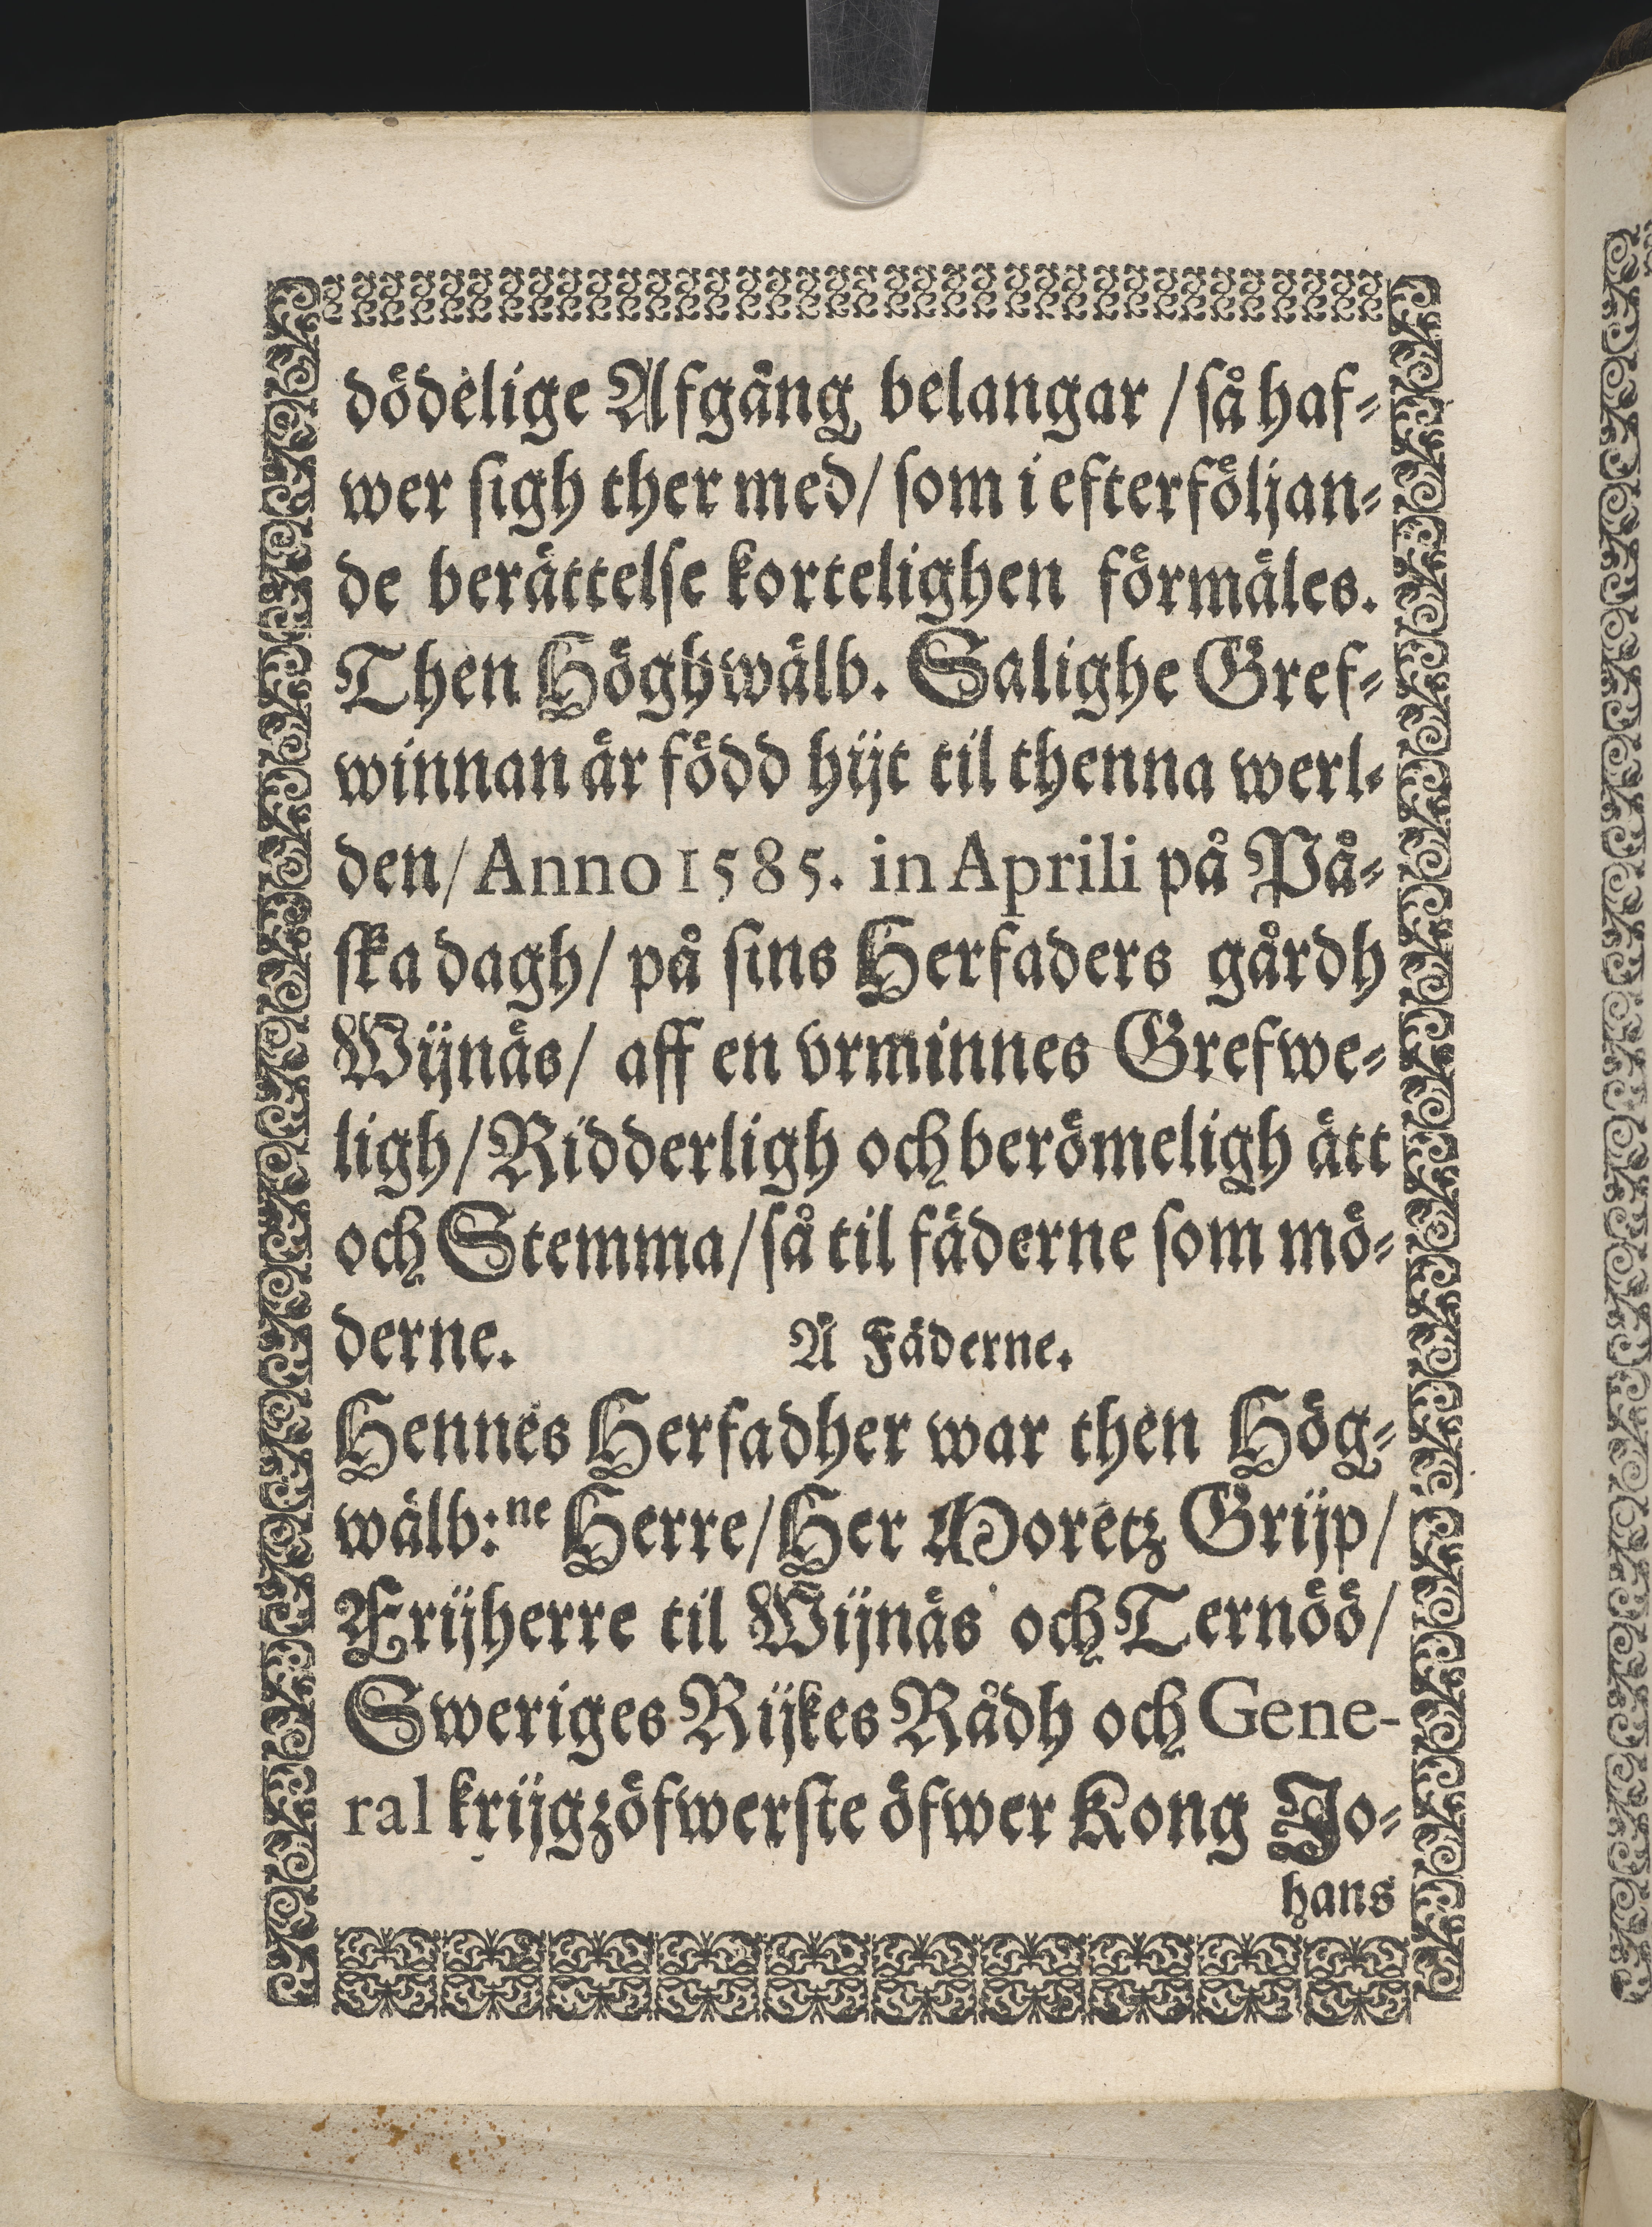 dödelige Afgång belangar / så haf-
wer sigh ther med / som i efterföljan-
de berättelse kortelighen förmäles.
Then Höghwälb. Salighe Gref-
winnan är född hijt til thenna werl-
den / Anno 1585. in Aprili på På-
ska dagh / på sins Herfaders gårdh
Wijnäs / aff en vrminnes Grefwe-
ligh / Ridderligh och berömeligh ätt
och Stemma / så til fäderne som mö-
derne. Å Fäderne.
Hennes Herfadher war then Hög-
wälb:ne Herre / Her Moretz Grijp /
Frijherre til Wijnäs och Ternöö /
Sweriges Rijkes Rådh och Gene-
ral krijgzöfwerste öfwer Kong Jo-
hans